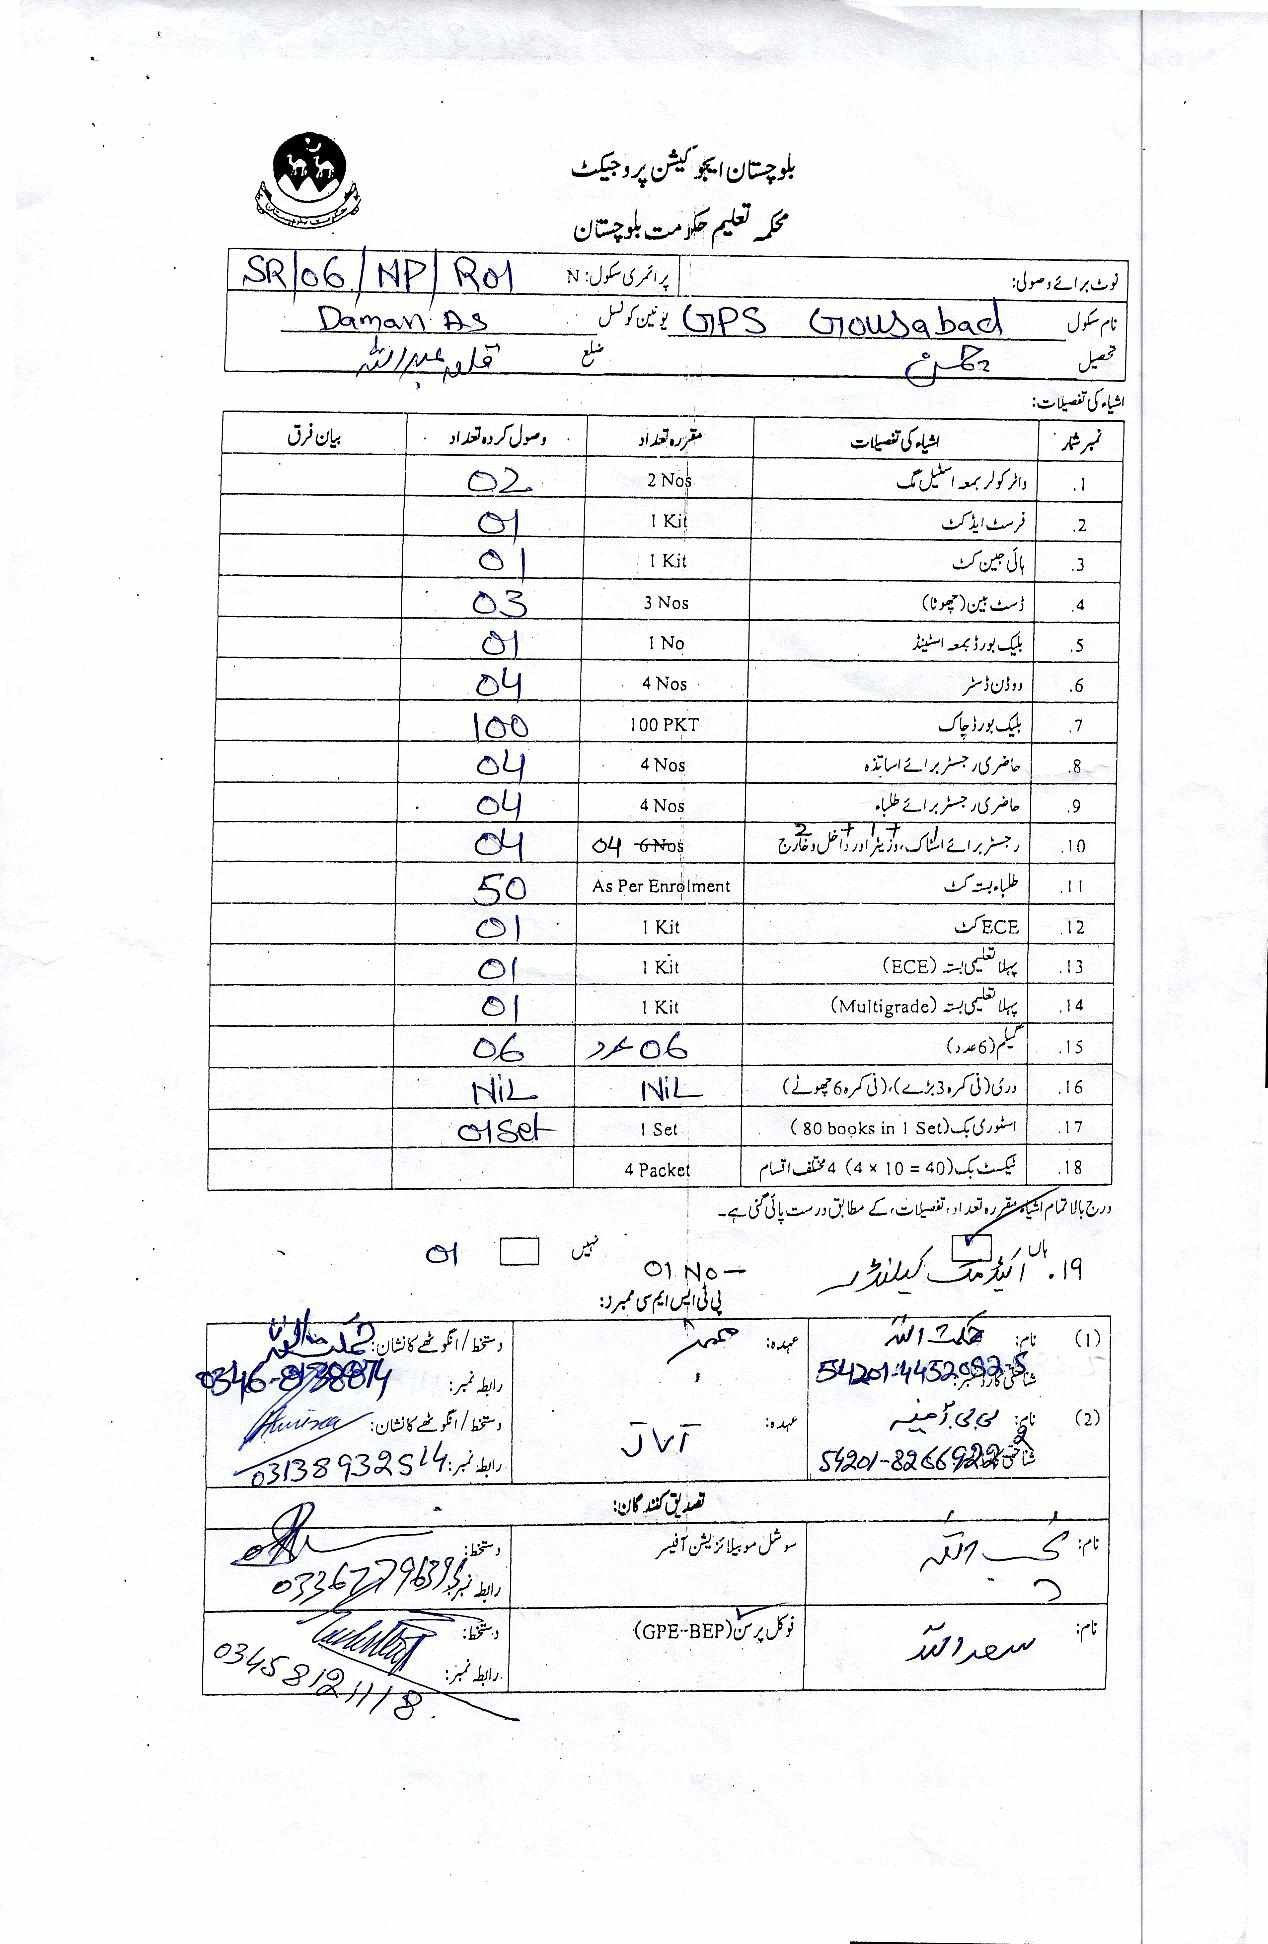 بلوچستان ایجوکیشن پروجیکٹ
محکمہ تعلیم حکومت بلوچستان
نوٹ برائے وصولی: پرائمری سکول: N SR/06/NP/R01
نام سکول GPS Gousabad یونین کونسل Daman As
تحصیل ضلع قلعہ عبداللہ
اشیاء کی تفصیلات:
نمبر شمار اشیاء کی تفصیلات مقررہ تعداد وصول کردہ تعداد بیان فرق
1. واٹر کولر بمعہ اسٹیل مگ 2 Nos 02
2. فرسٹ ایڈ کٹ 1 Kit 01
3. ہائی جین کٹ 1 Kit 01
4. ڈسٹ بین (چھوٹا) 3 Nos 03
5. بلیک بورڈ بمعہ اسٹینڈ 1 No 01
6. ووڈن ڈسٹر 4 Nos 04
7. بلیک بورڈ چاک 100 PKT 100
8. حاضری رجسٹر برائے اساتذہ 4 Nos 04
9. حاضری رجسٹر برائے طلباء 4 Nos 04
10. رجسٹر برائے اسٹاک، وزیٹر اور داخل و خارج 2 + 1 + 1 04 6 Nos 04
11. طلباء بستہ کٹ As Per Enrolment 50
12. ECE کٹ 1 Kit 01
13. پہلا تعلیمی بستہ (ECE) 1 Kit 01
14. پہلا تعلیمی بستہ (Multigrade) 1 Kit 01
15. گلیم (6 عدد) 06 عدد 06
16. دری (فی کمرہ 3 بڑے)، (فی کمرہ 6 چھوٹے) NiL NiL
17. اسٹوری بک (80 books in 1 Set) 1 Set 01 Set
18. ٹیکسٹ بک (4 × 10 = 40) 4 مختلف اقسام 4 Packet
درج بالا تمام اشیاء مقررہ تعداد، تفصیلات، کے مطابق درست پائی گئی ہے۔
ہاں نہیں
۱۹. اکیڈمک کیلنڈر 01 No - 01
پی ٹی ایس ایم سی ممبرز:
(1) نام: حکمت اللہ عہدہ: ممبر دستخط/انگوٹھے کا نشان:
شناختی کارڈ نمبر: 54201-4452092-5 رابطہ نمبر: 0346-8138874
(2) نام: بی بی آمنہ عہدہ: JVT دستخط/انگوٹھے کا نشان:
54201-8266922-2 رابطہ نمبر: 03138932514
تصدیق کنندگان:
نام: محب اللہ سوشل موبیلائزیشن آفیسر دستخط:
رابطہ نمبر:
نام: سعداللہ فوکل پرسن (GPE-BEP) دستخط:
رابطہ نمبر: 03458121118